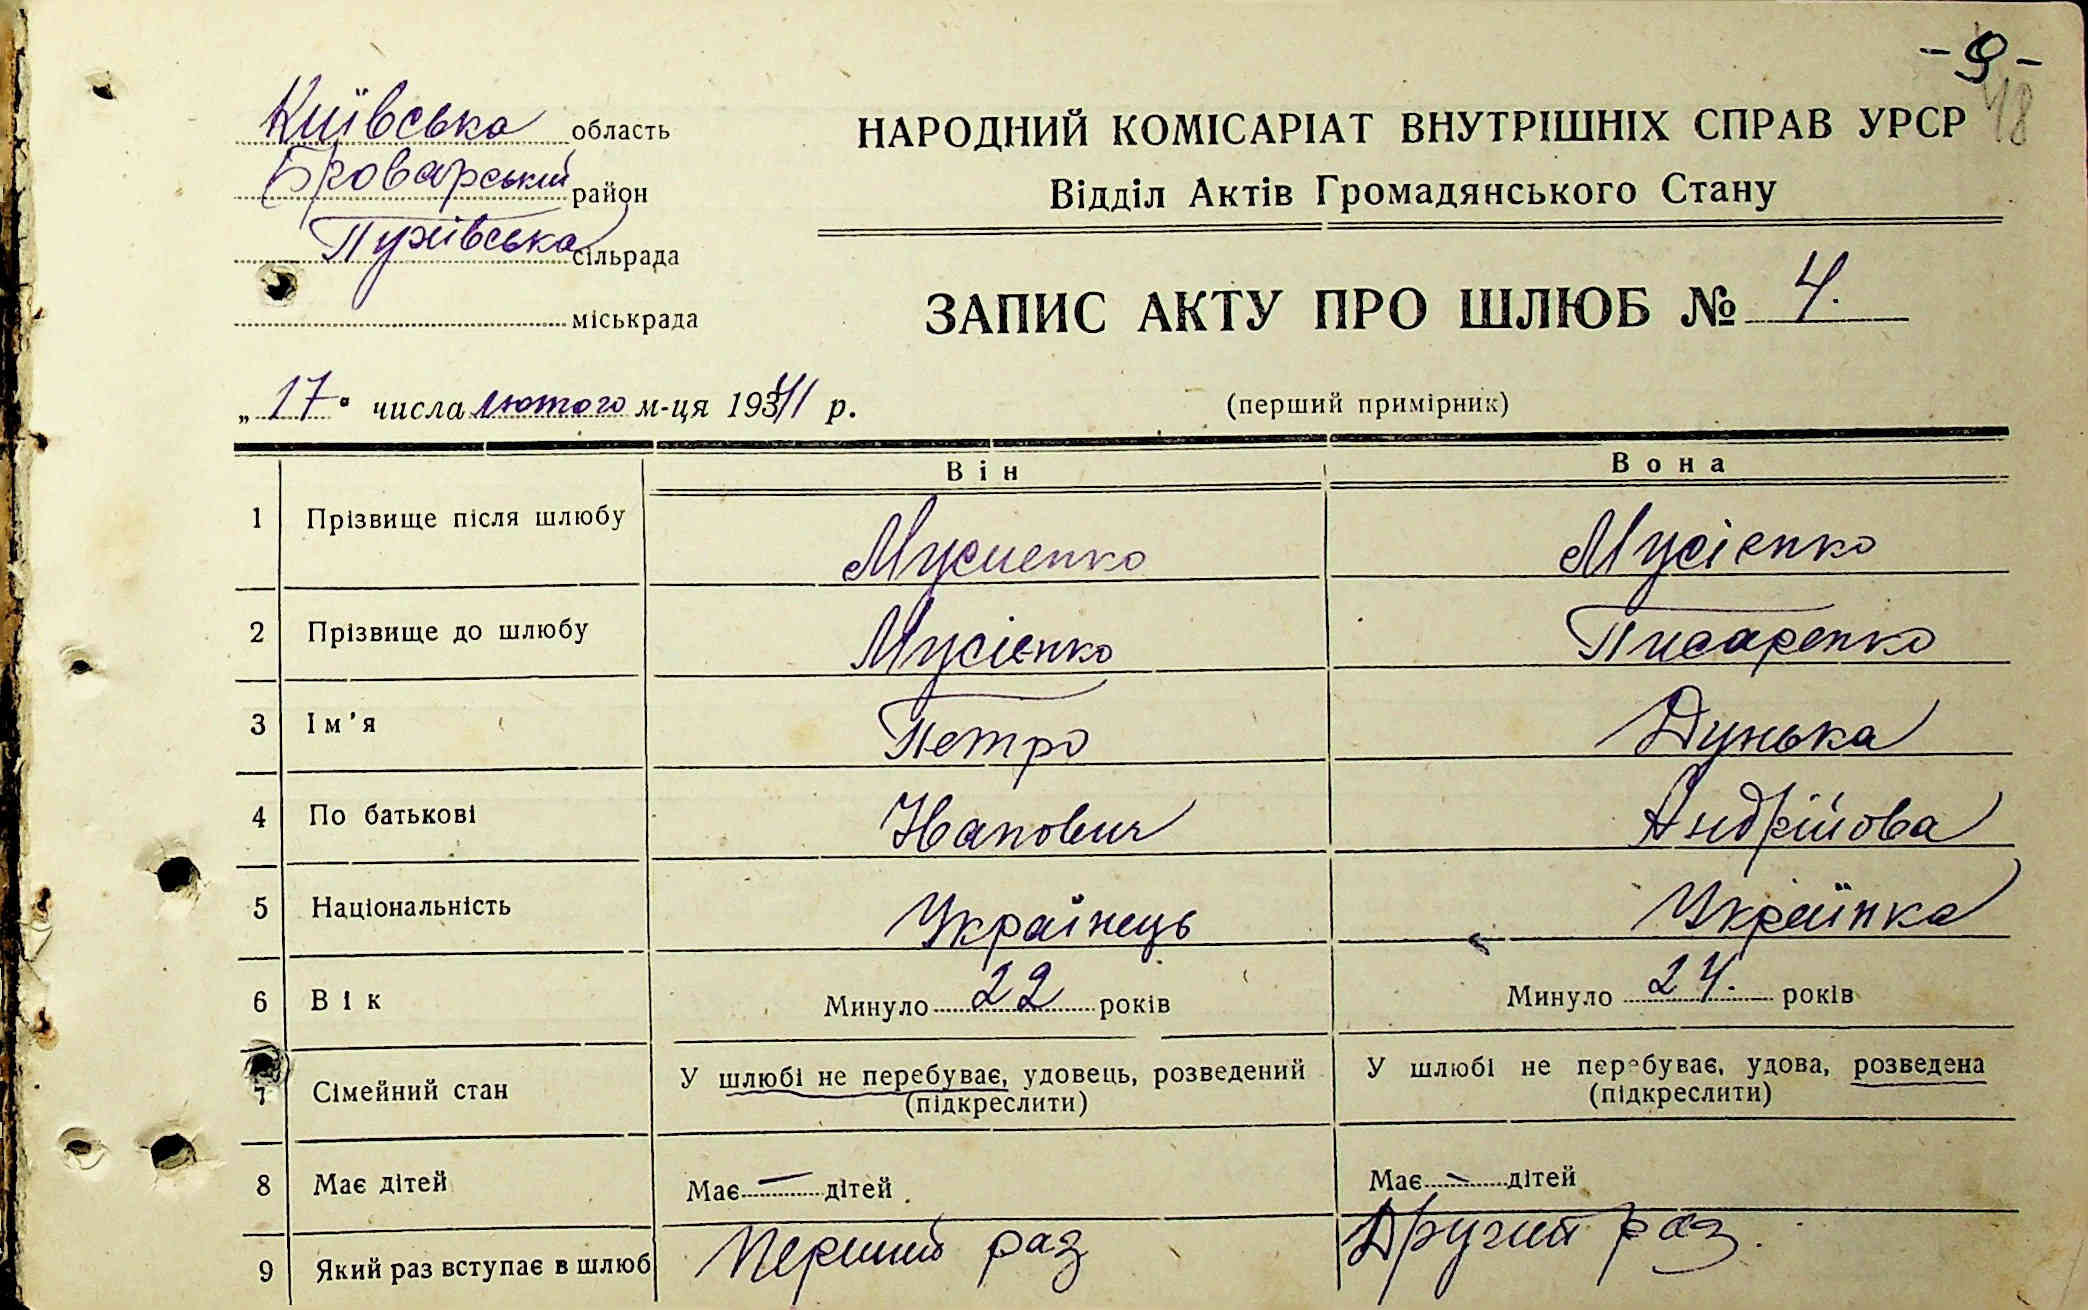 - 9 -
48
Київська область
Броварський район
Пухівська сільрада
міськрада
НАРОДНИЙ КОМІСАРІАТ ВНУТРІШНІХ СПРАВ УРСР
Відділ Актів Громадянського Стану
ЗАПИС АКТУ ПРО ШЛЮБ № 4.
„17" числа лютого м-ця 1941 р.
(перший примірник)
Він Вона
1 Прізвище після шлюбу Мусиенко Мусієнко
2 Прізвище до шлюбу Мусієнко Писаренко
3 Ім'я Петро Дунька
4 По батькові Андрійова
5 Національність Українець Українка
6 Вік Минуло 22 років Минуло 24. років
7 Сімейний стан У шлюбі не перебуває, удовець, розведений У шлюбі не перебуває, удова, розведена
(підкреслити) (підкреслити)
8 Має дітей Має — дітей Має - дітей
9 Який раз вступає в шлюб Перший раз Другий раз.